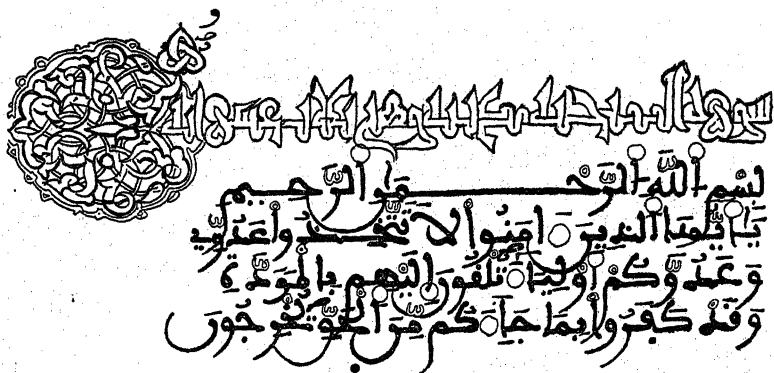 سورة وهي ثلث عشرة اية
بِسْمِ اللَّهِ الرَّحْمَٰنِ الرَّحِيمِ
يَٰأَيُّهَا الَّذِينَ ءَامَنُوا لَا تَتَّخِذُوا عَدُوِّي
وَعَدُوَّكُمْ أَوْلِيَاءَ تُلْقُونَ إِلَيْهِم بِالْمَوَدَّةِ
وَقَدْ كَفَرُوا بِمَا جَاءَكُم مِّنَ الْحَقِّ يُخْرِجُونَ